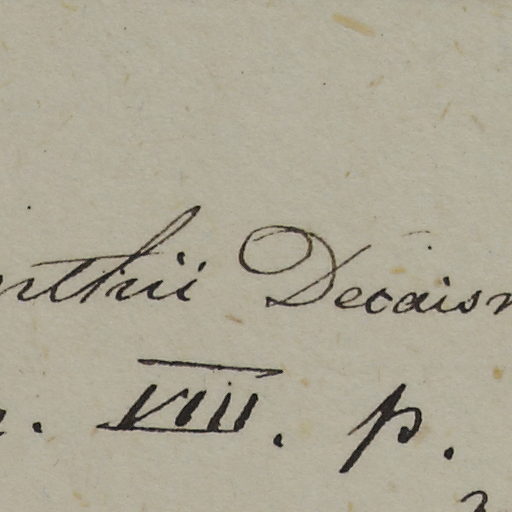 nthii Decaisn
. VIII. p.